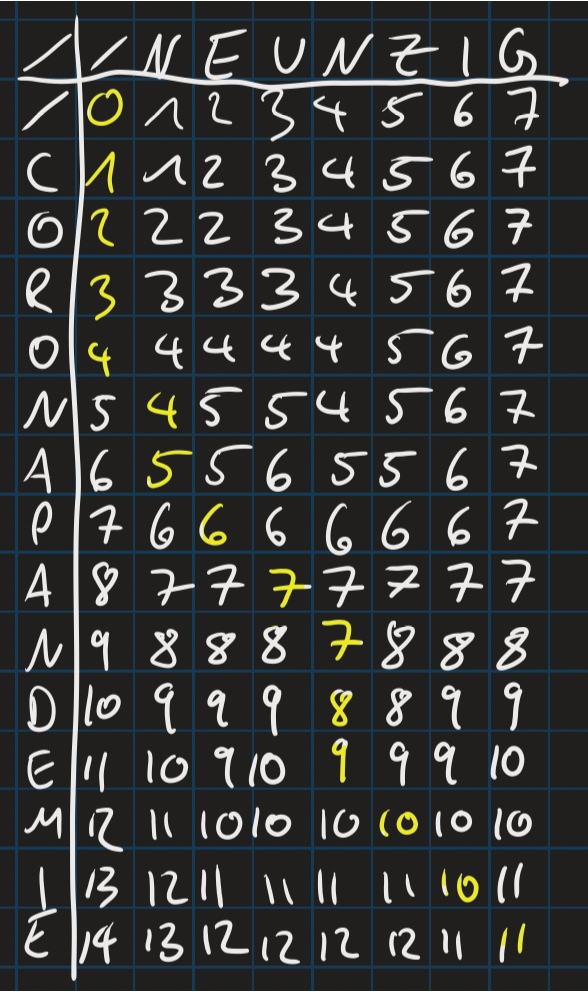 / / N E U N Z I G
/ 0 1 2 3 4 5 6 7
C 1 1 2 3 4 5 6 7
O 2 2 2 3 4 5 6 7
R 3 3 3 3 4 5 6 7
O 4 4 4 4 4 5 6 7
N 5 4 5 5 4 5 6 7
A 6 5 5 6 5 5 6 7
P 7 6 6 6 6 6 6 7
A 8 7 7 7 7 7 7 7
N 9 8 8 8 7 8 8 8
D 10 9 9 9 8 8 9 9
E 11 10 9 10 9 9 9 10
M 12 11 10 10 10 10 10 10
I 13 12 11 11 11 11 10 11
E 14 13 12 12 12 12 11 11